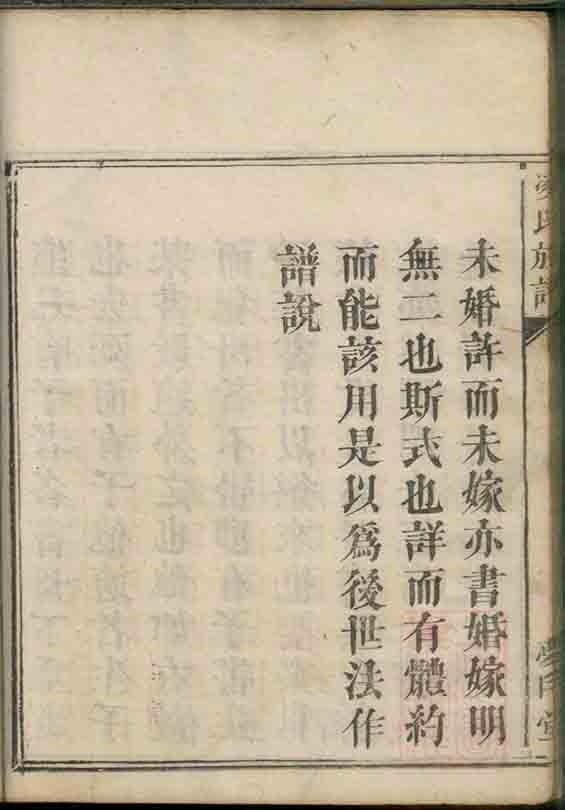 氏族譜
未婚許而未嫁亦書婚嫁明
無二也斯式也詳而有體約
而能該用是以爲後世法作
譜說